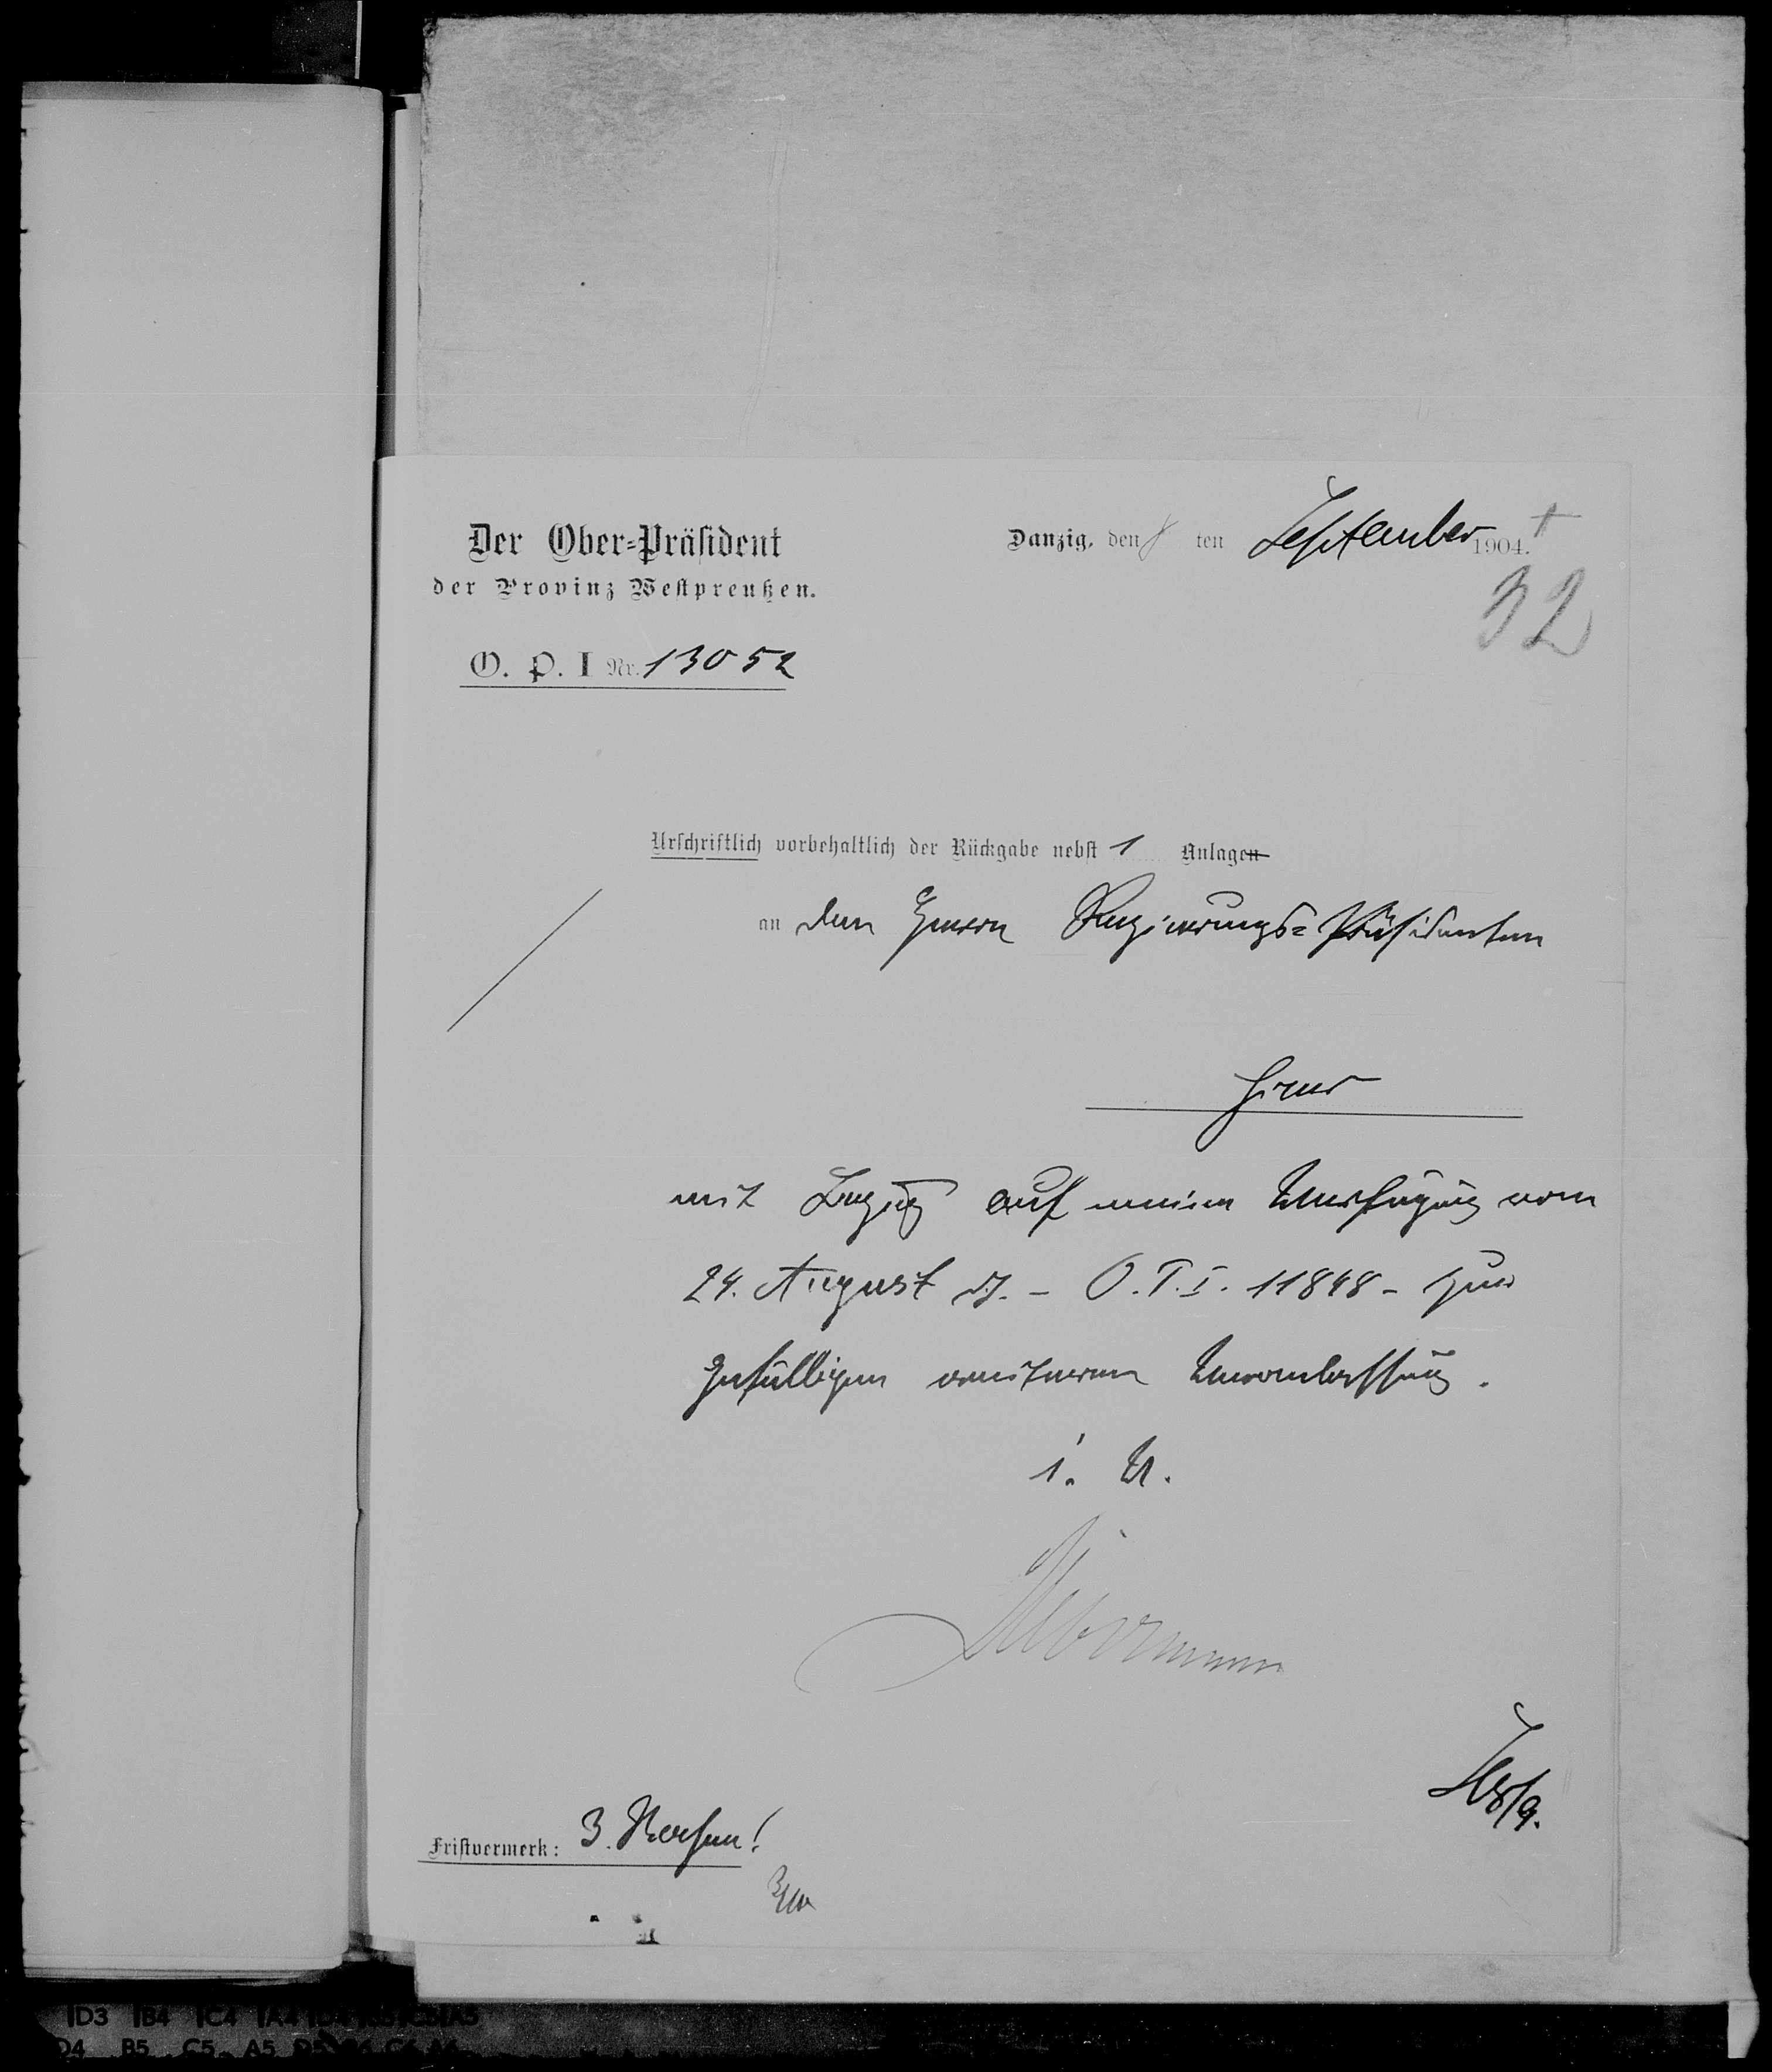 Der Ober-Präsident
der Provinz Westpreußen.
Danzig, den 8 ten September 1904.
32
O. P. I Nr. 13052
Urschriftlich vorbehaltlich der Rückgabe nebst 1 Anlagen
an den Herrn Regierungs-Präsidenten
hier
mit Bezug auf meine Verfügung vom
24. August d. J. – O. P. I. 11848 – zur
gefälligen weiteren Veranlassung.
i. V.
Fristvermerk: 3 Wochen!
D3 B4 C4 A4
D4 B5 C5 A5